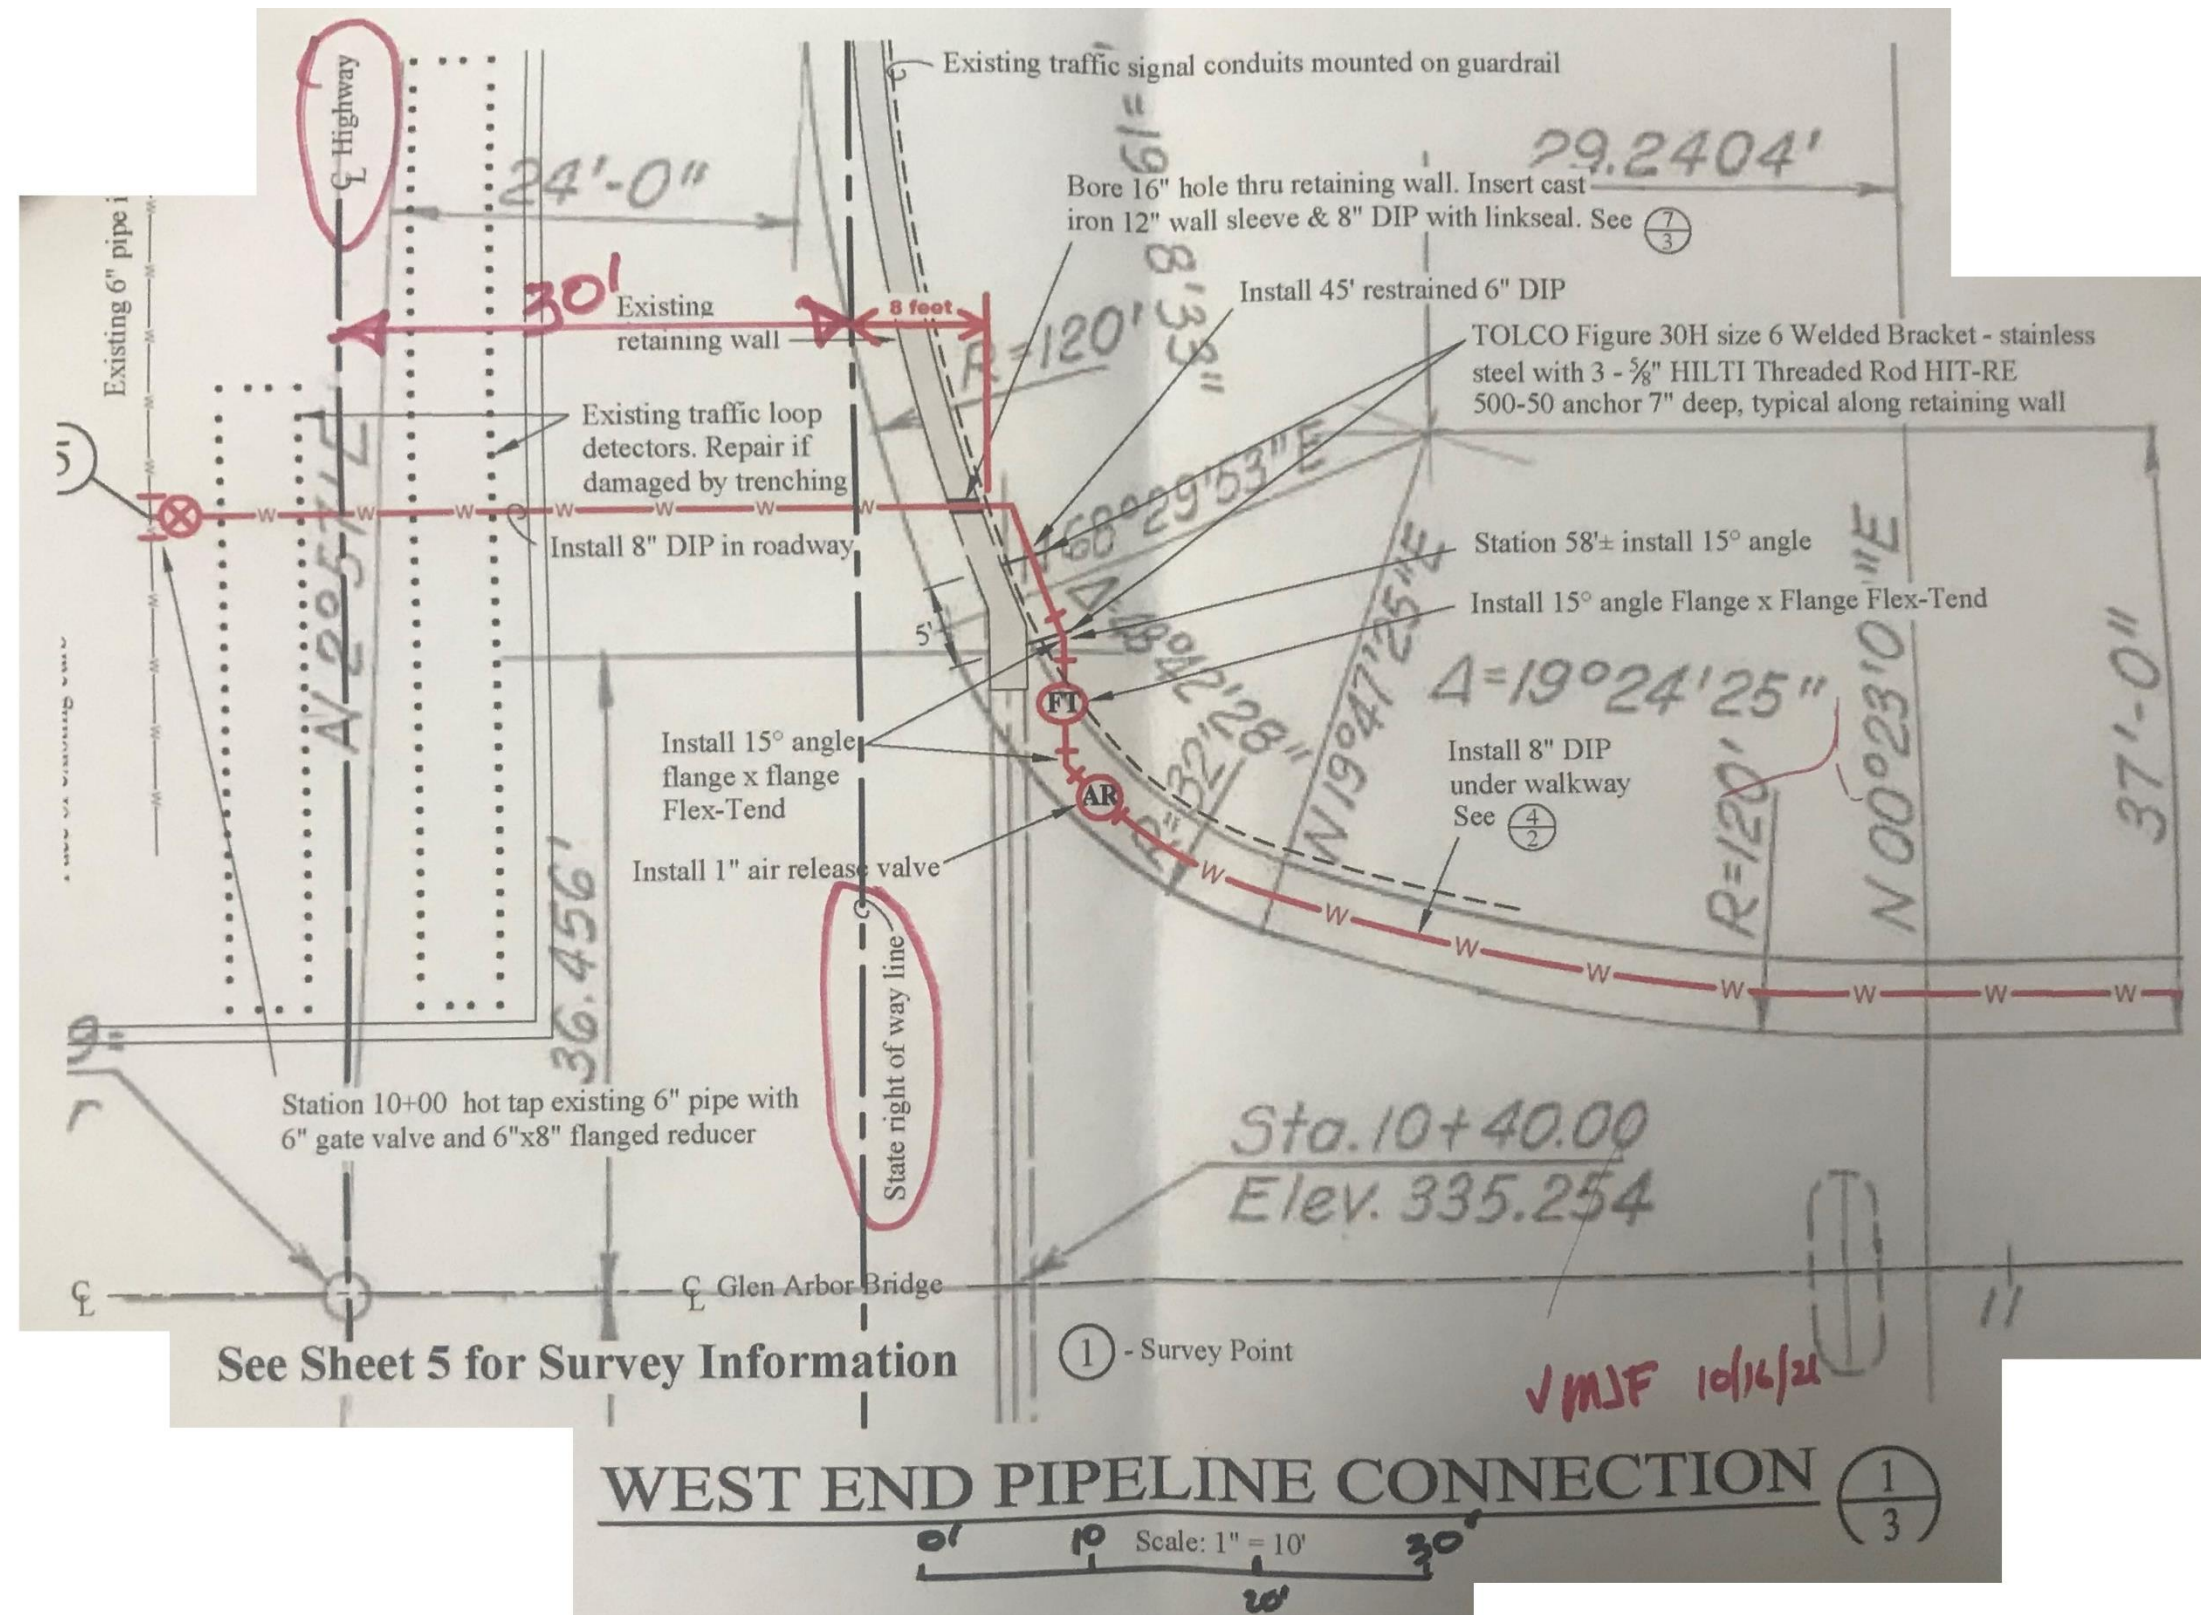 ℄ Highway
Existing traffic signal conduits mounted on guardrail
24'-0"
29.2404'
Bore 16" hole thru retaining wall. Insert cast
iron 12" wall sleeve & 8" DIP with linkseal. See 7/3
Existing 6" pipe
30'
8 feet
Existing
retaining wall
Install 45' restrained 6" DIP
R=120'
8'33"
TOLCO Figure 30H size 6 Welded Bracket - stainless
steel with 3 - ⅝" HILTI Threaded Rod HIT-RE
500-50 anchor 7" deep, typical along retaining wall
Existing traffic loop
detectors. Repair if
damaged by trenching
5
W W W W W W W
Install 8" DIP in roadway
68°29'53"E
Station 58'± install 15° angle
Install 15° angle Flange x Flange Flex-Tend
5'
Δ 48°42'28"
N 19°47'25"E
Δ=19°24'25"
N 00°23'0"E
37'-0"
FT
Install 15° angle
flange x flange
Flex-Tend
AR
32'
Install 8" DIP
under walkway
See 4/2
R=120'
Install 1" air release valve
W W W W W W W W
36.456'
State right of way line
Station 10+00 hot tap existing 6" pipe with
6" gate valve and 6"x8" flanged reducer
Sta. 10+40.00
Elev. 335.254
℄
℄ Glen Arbor Bridge
11
See Sheet 5 for Survey Information
1 - Survey Point
√ MJF 10/16/21
WEST END PIPELINE CONNECTION 1/3
Scale: 1" = 10'
0' 10 20' 30'